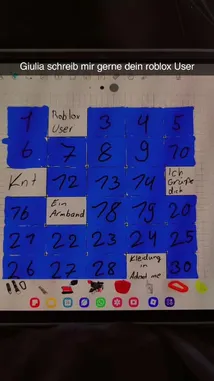 Giulia schreib mir gerne dein roblox User
1 Roblox User 3 4 5
6 7 8 9 10
Knt 12 13 14 Ich Grüße dich
16 Ein Armband 18 19 20
21 22 23 24 25
26 27 28 Kleidung in Adopt me 30